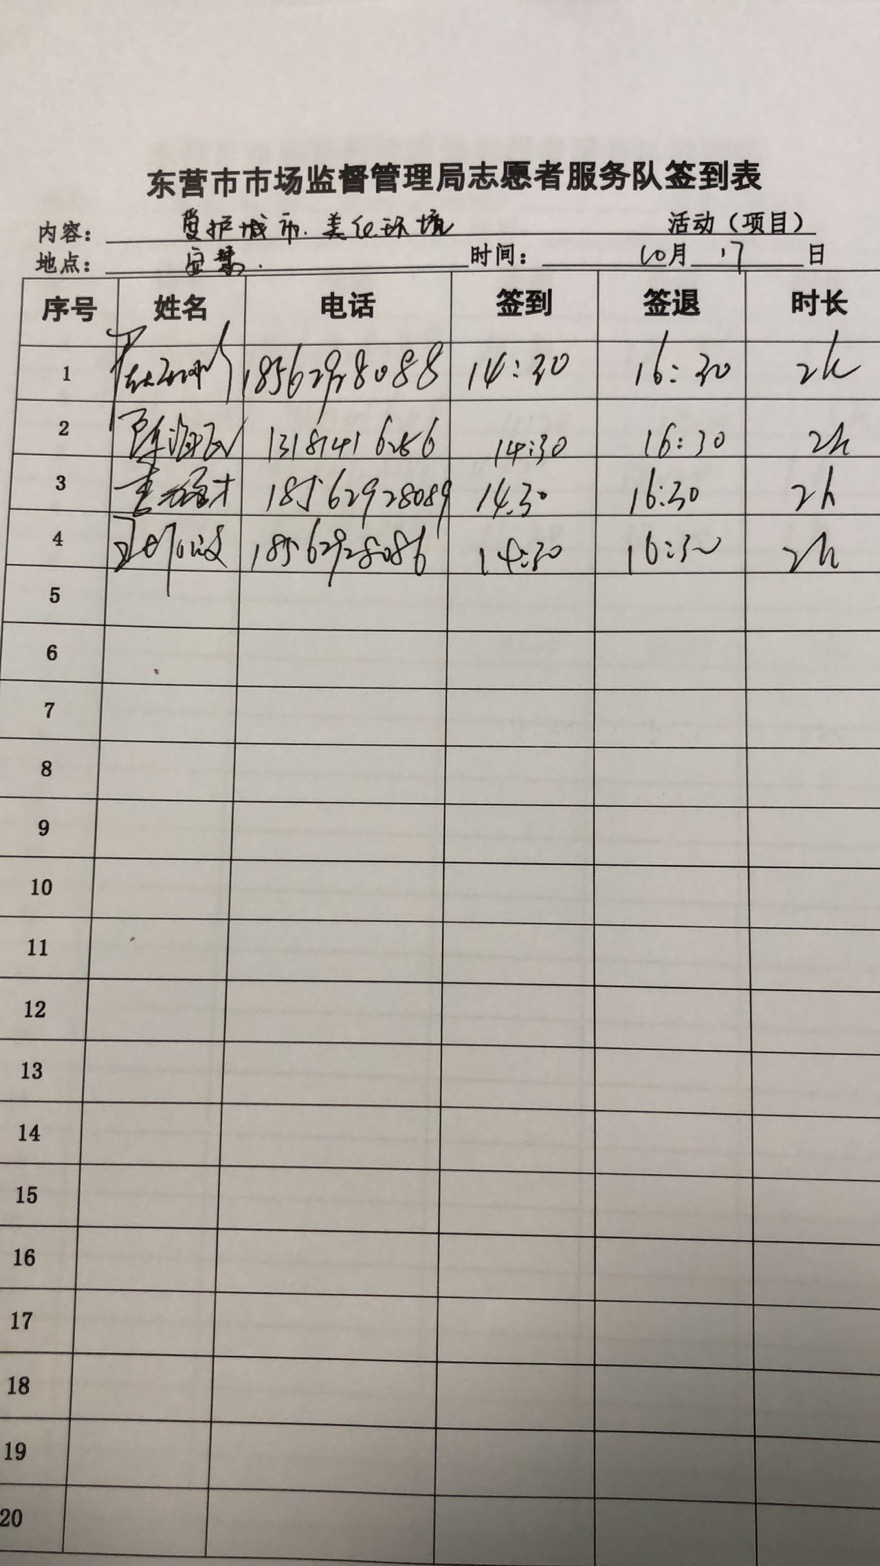 东营市市场监督管理局志愿者服务队签到表
内容: 爱护城市.美化环境 活动(项目)
地点: 时间: 10月 17 日
序号 姓名 电话 签到 签退 时长
1 18562928088 14:30 16:30 2h
2 13181416256 14:30 16:30 2h
3 18562928089 14.30 16:30 2h
4 18562928086 14:30 16:30 2h
5
6
7
8
9
10
11
12
13
14
15
16
17
18
19
20